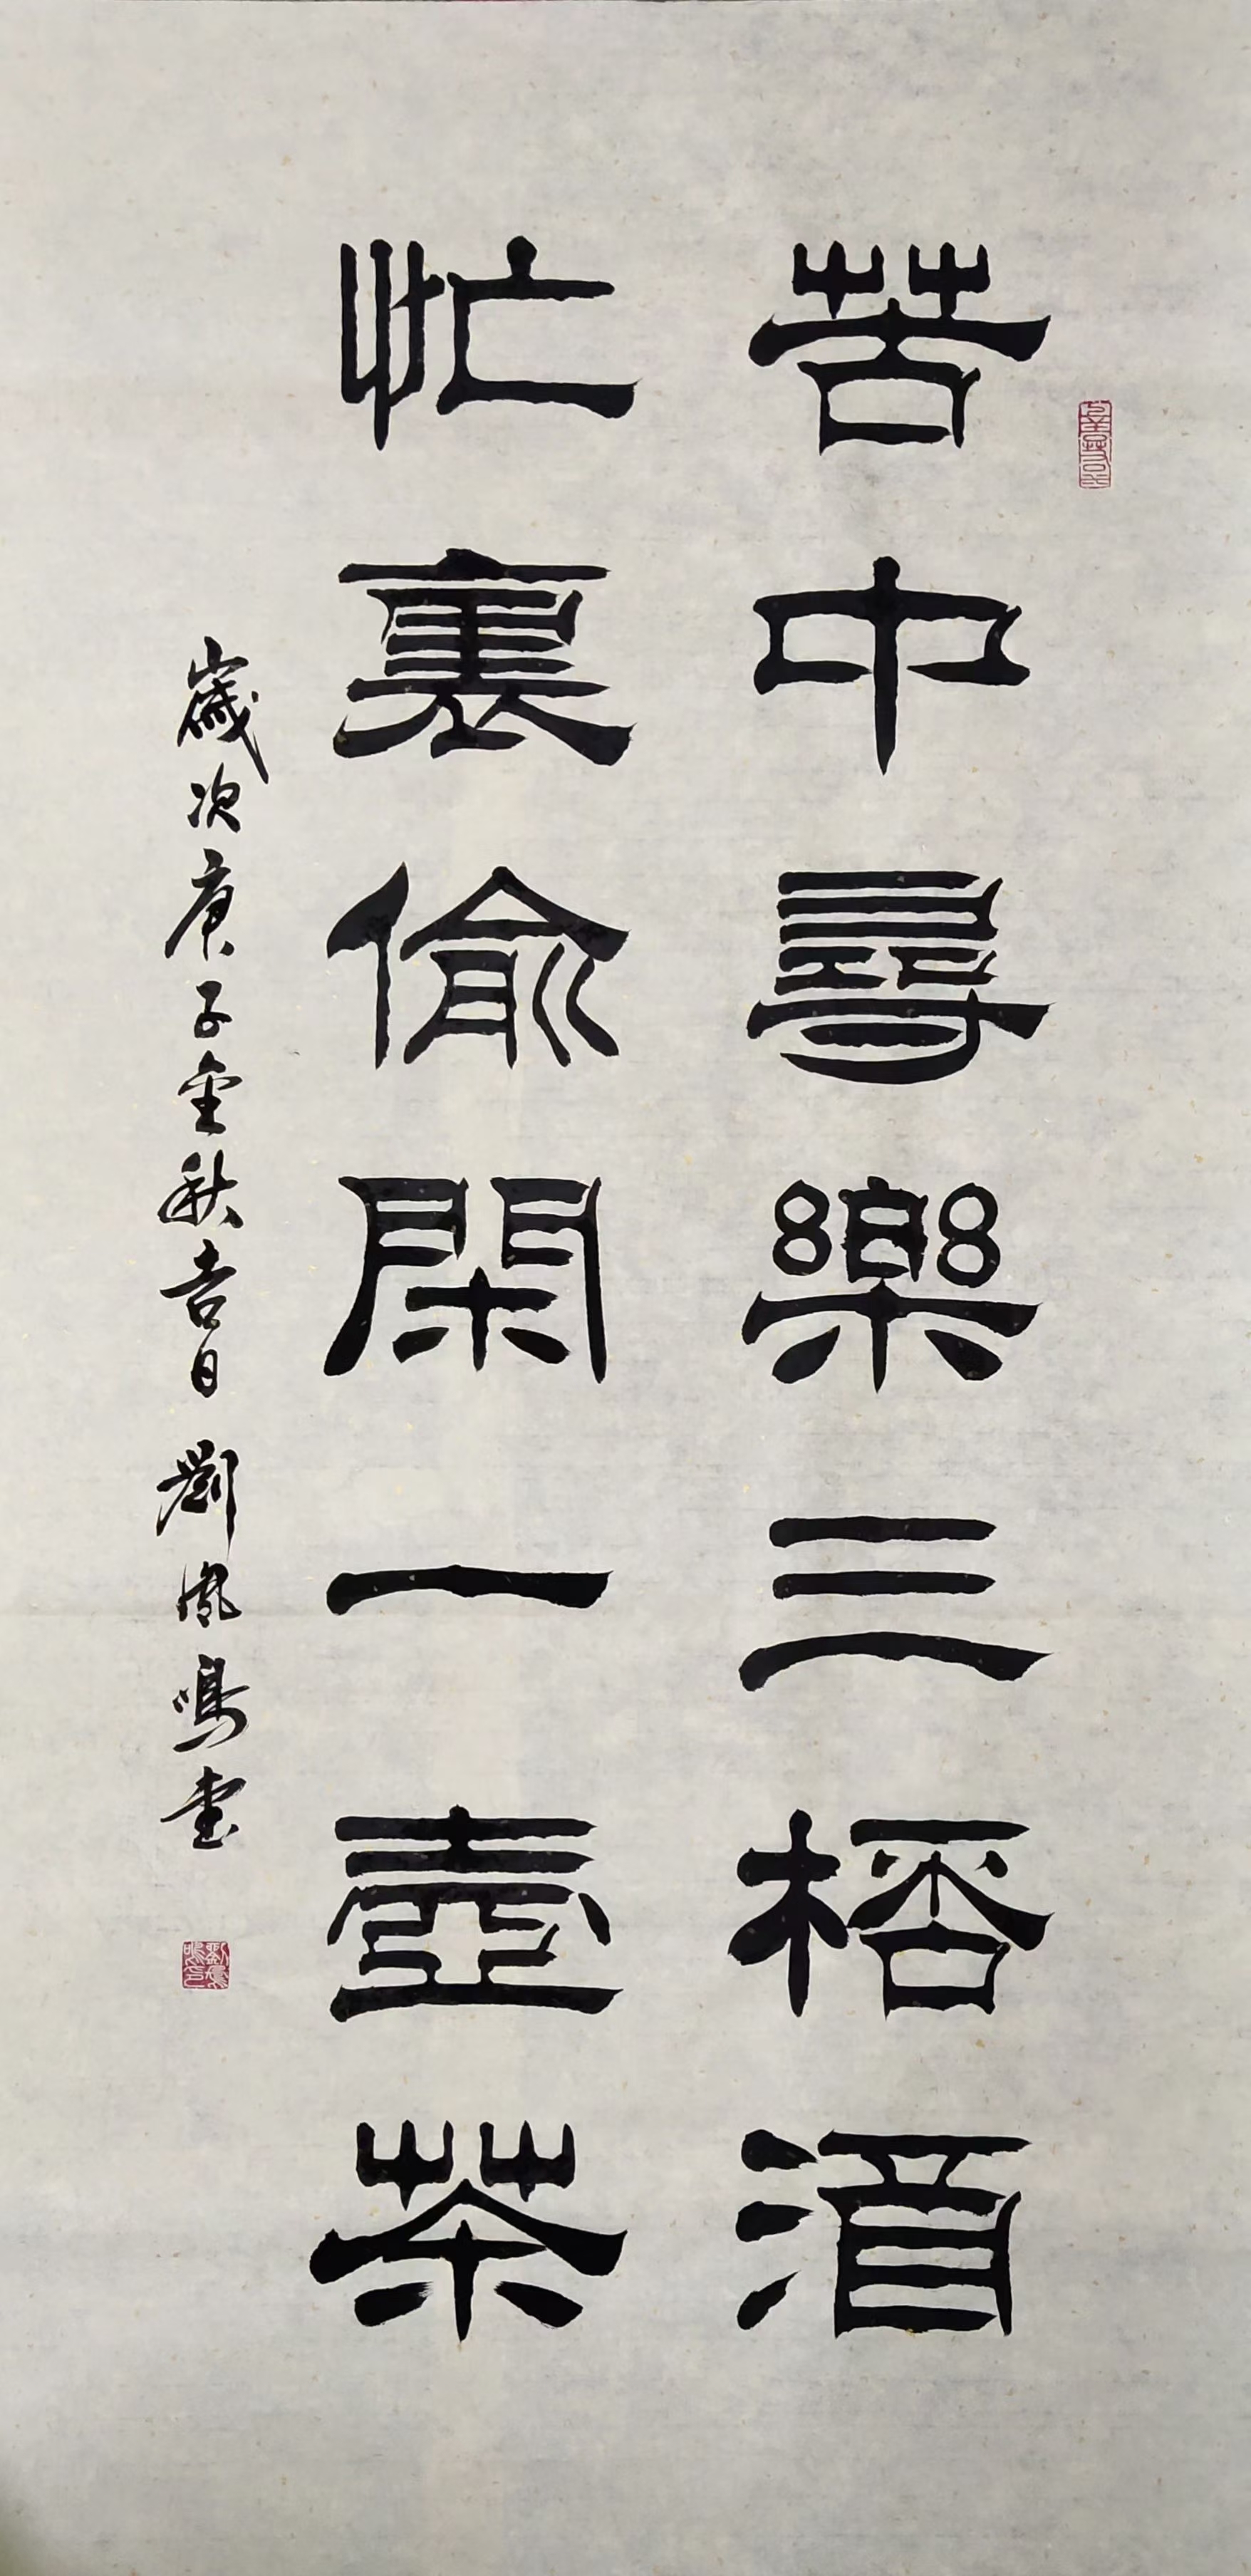 苦中尋樂三桮酒
忙裏偷閑一壺茶
歲次庚子金秋吉日 劉鳳鳴書